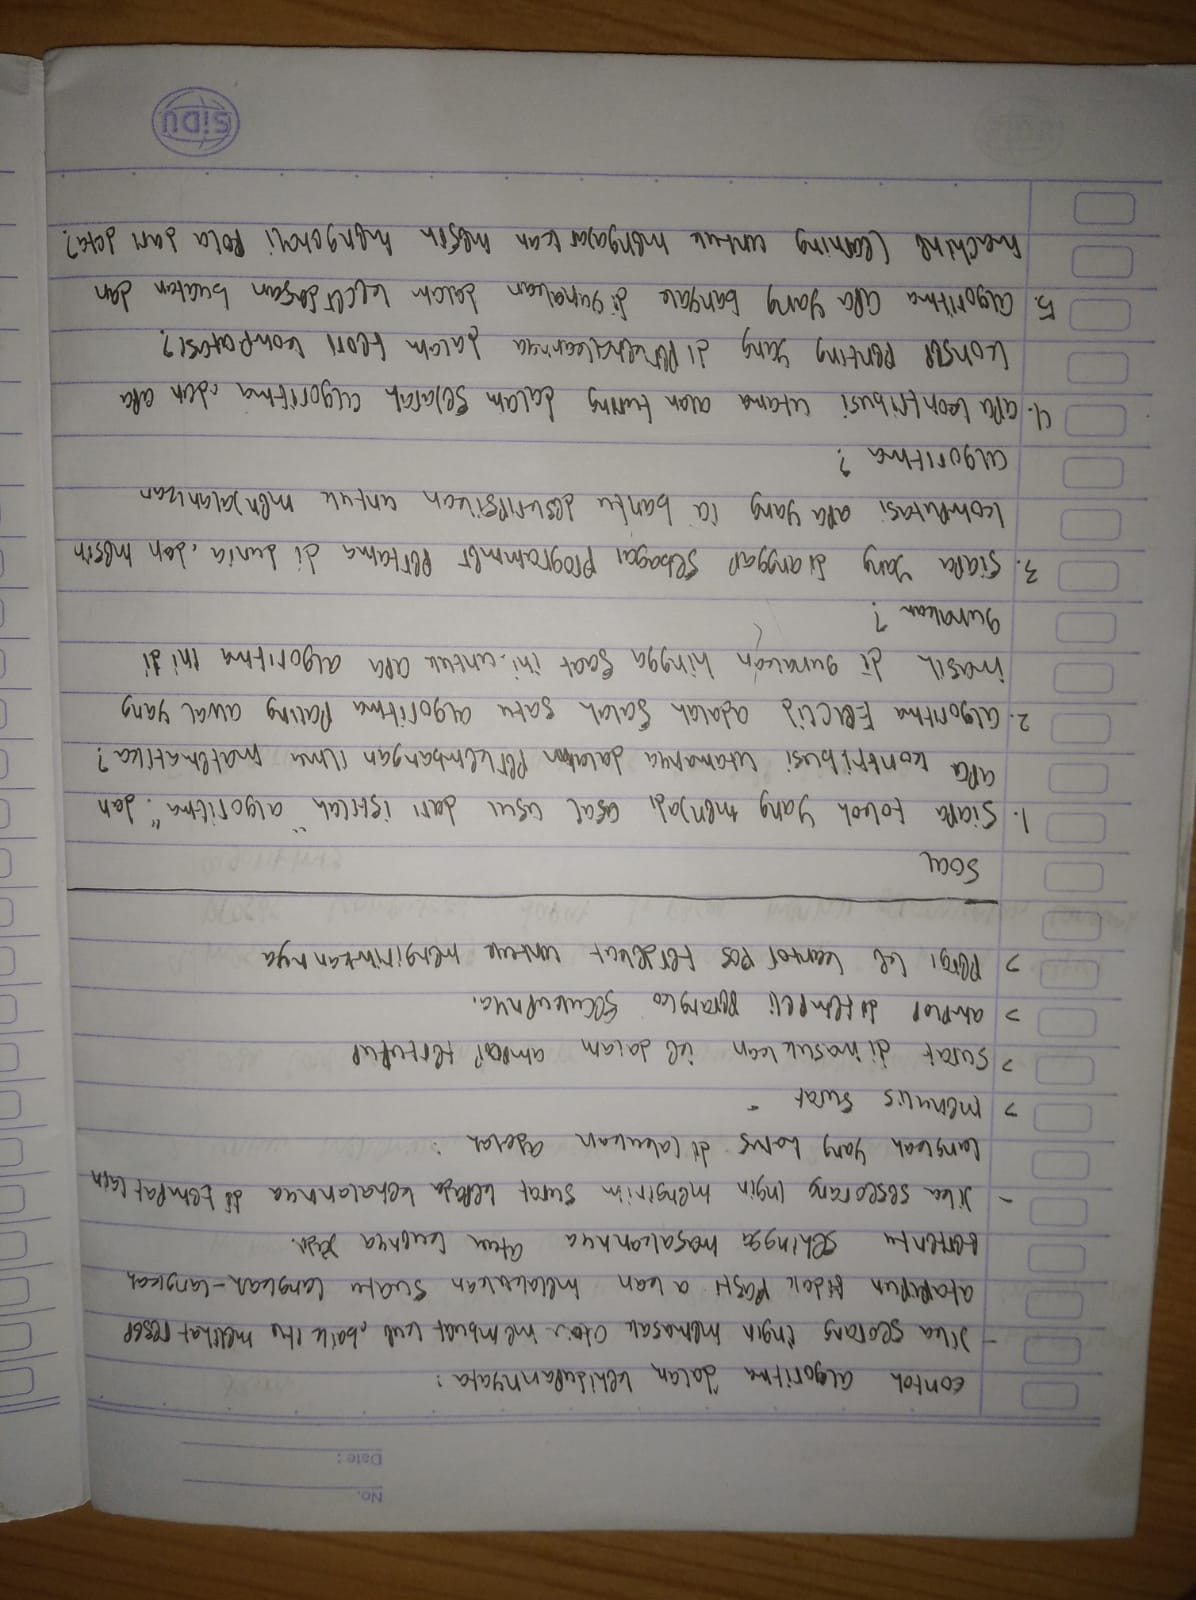 No.
Date :
contoh algoritma dalam kehidupannyata :
- Jika seorang ingin memasak atau membuat kue, baik itu melihat resep
ataupun tidak pasti akan melakukan suatu langkah-langkah
tertentu sehingga masakannya atau kuenya jadi.
- Jika seseorang ingin mengirim surat kepada kenalannya di tempat lain
langkah yang harus dilakukan adalah :
> menulis surat -
> surat dimasukkan ke dalam amplop tertutup
> amplop ditempeli perangko secukupnya.
> pergi ke kantor pos terdekat untuk mengirimkannya
Soal
1. Siapa tokoh yang menjadi asal usul dari istilah "algoritma". dan
apa kontribusi utamanya dalam perkembangan ilmu matematika?
2. algoritma Euclid adalah salah satu algoritma paling awal yang
masih di gunakan hingga saat ini. untuk apa algoritma ini di
gunakan ?
3. siapa yang dianggap sebagai programmer pertama di dunia, dan mesin
komputasi apa yang ia bantu deskripsikan untuk menjalankan
algoritma ?
4. apa kontribusi utama alan turing dalam sejarah algoritma, dan apa
konsep penting yang di perkenalkannya dalam teori komputasi?
5. algoritma apa yang banyak digunakan dalam kecerdasan buatan dan
machine learning untuk mengajarkan mesin mengenali pola dari data?
SiDU